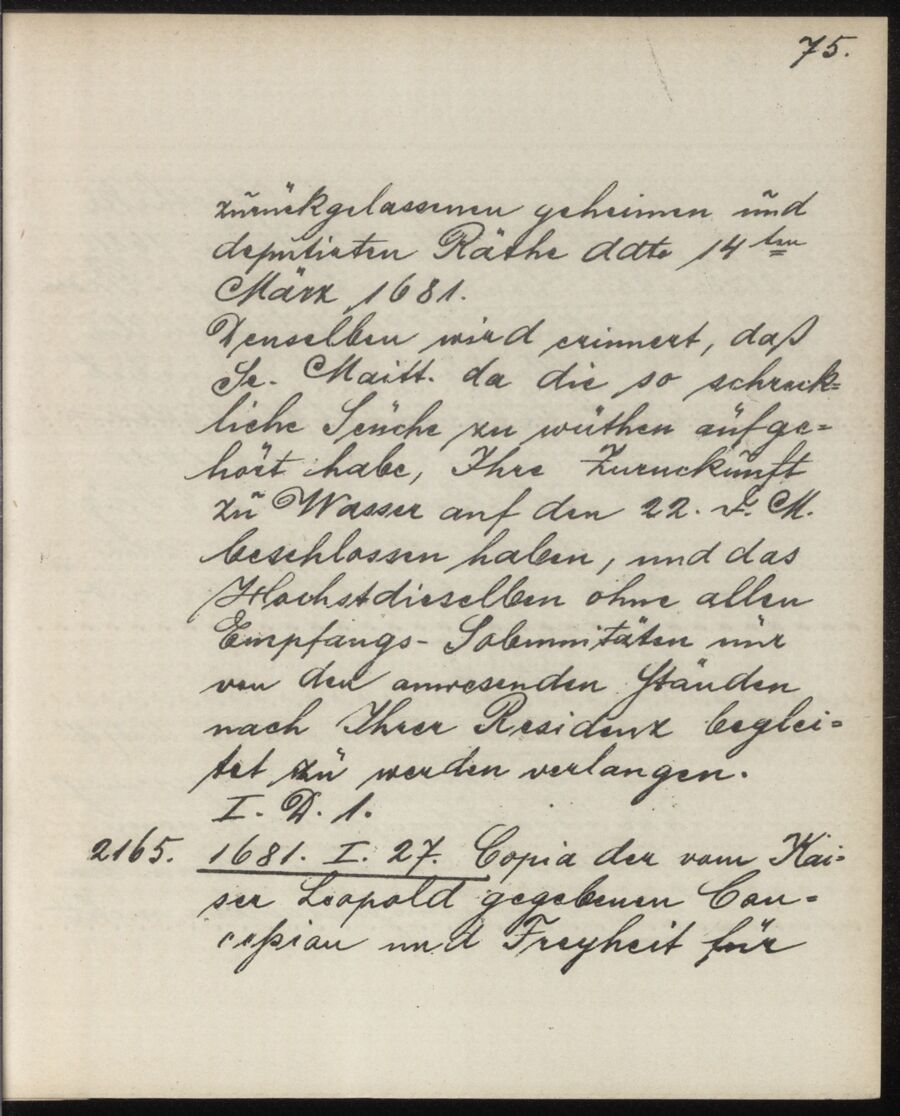 75.
zurückgelassenen geheimen und
deputirten Räthe ddto 14ten
März 1681.
Denselben wird erinnert, daß
Se. Maitt. da die so schreck=
liche Seuche zu wüthen aufge=
hört habe, Ihre Zuruckunft
zu Wasser auf den 22. d. M.
beschlossen haben, und das
Hochstdieselben ohne allen
Empfangs-Solemnitäten nur
von den anwesenden Ständen
nach Ihrer Residenz beglei=
tet zu werden verlangen.
I. D. 1.
2165. 1681. I. 27. Copia der vom Kai=
ser Leopold gegebenen Con=
ceßion und Freyheit für